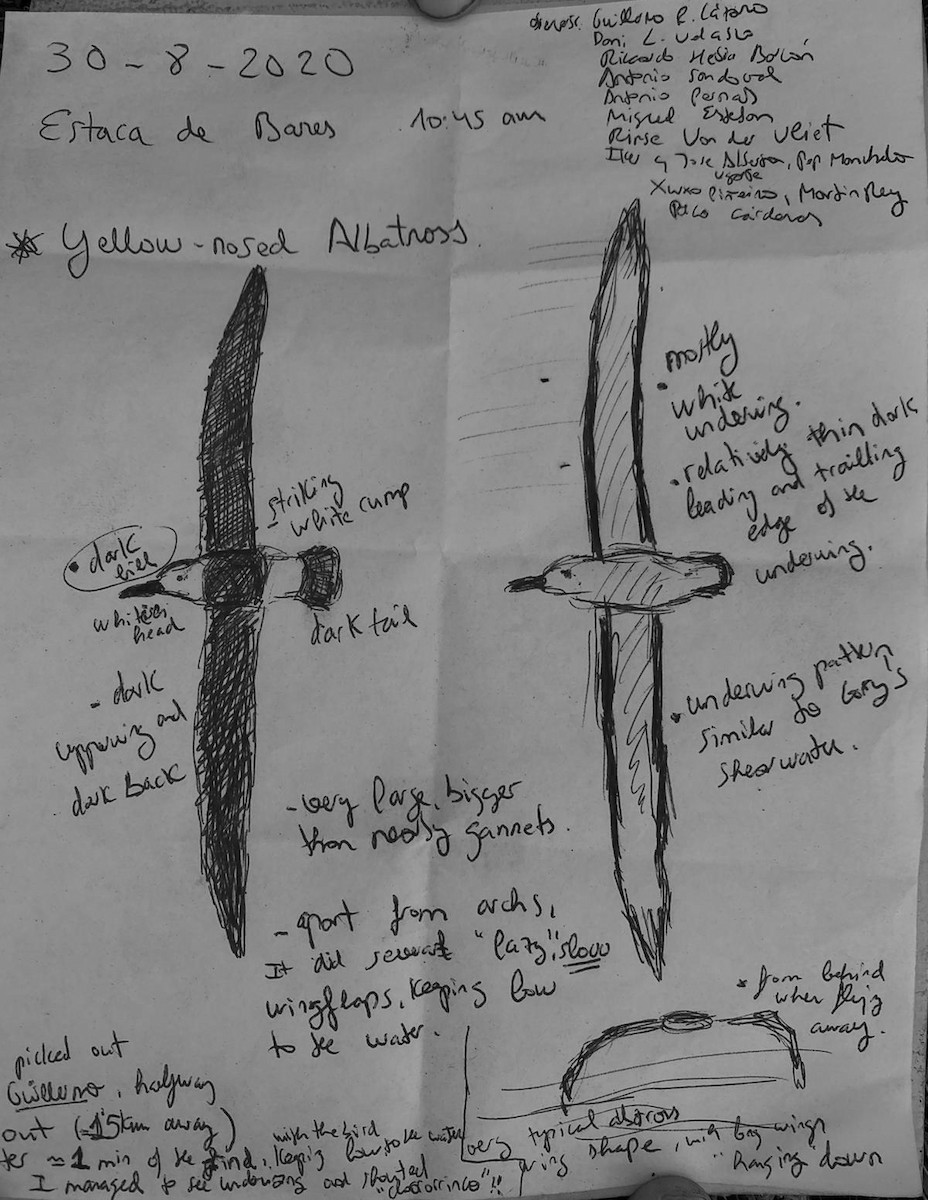 30-8-2020
Estaca de Bares 10:45 am
Guillermo R. Lázaro
Dani L. Velasco
Antonio Sandoval
Antonio
Miguel
Rinse Van der Vliet
Martin Rey
* Yellow-nosed Albatross.
• dark
bill
whiteish
head
- striking
white rump
dark tail
- dark
upperwing and
dark back
• mostly
white
underwing.
• relatively thin dark
leading and trailling
edge of the
underwing.
• underwing pattern
similar to Cory's
shearwater.
- very large, bigger
than nearby gannets.
- apart from archs,
It did several "lazy", slow
wingflaps, keeping low
to the water.
* from behind
when flying
away.
very typical albatross
wing shape, with big wings
"hanging" down
picked out
Guillermo, halfway
out (≈1.5km away)
≈ 1 min of the find, with the bird keeping low to the water
I managed to see underwing and shouted